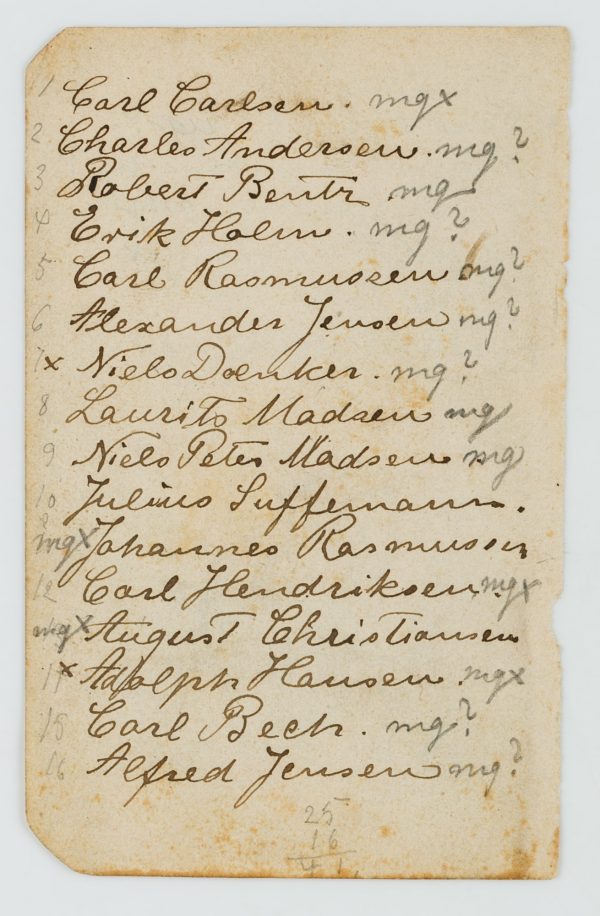 1 Carl Carlsen. mgx
2 Charles Andersen. mg?
3 Robert Bentz mg
4 Erik Holm. mg?
5 Carl Rasmussen mg?
6 Alexander Jensen mg?
7x Niels Dænker. mg?
8 Laurits Madsen mg
9 Niels Peter Madsen mg
10 Julius Suffemann.
mgx Johannes Rasmussen
12 Carl Hendriksen. mgx
mgx August Christiansen
14x Adolph Hansen. mgx
15 Carl Bech. mg?
16 Alfred Jensen mg?
25
16
41